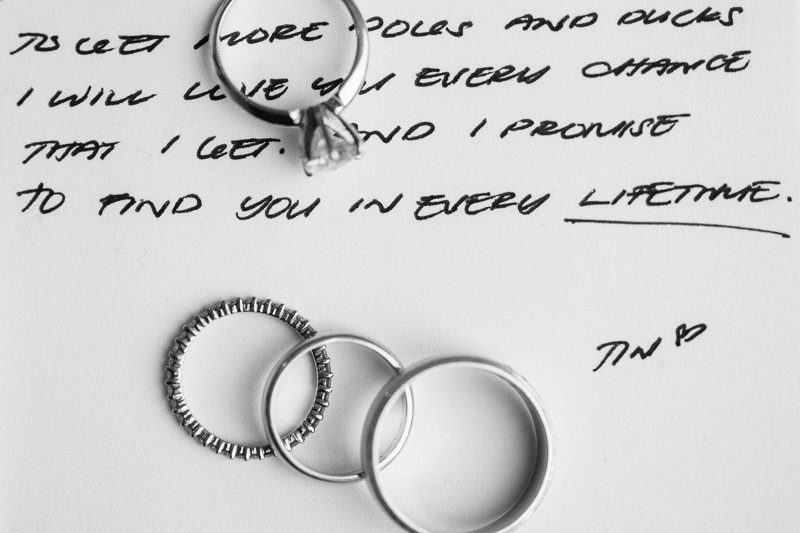 TO GET MORE POLES AND DUCKS
I WILL LOVE YOU EVERY CHANCE
THAT I GET. AND I PROMISE
TO FIND YOU IN EVERY LIFETIME.
TIN